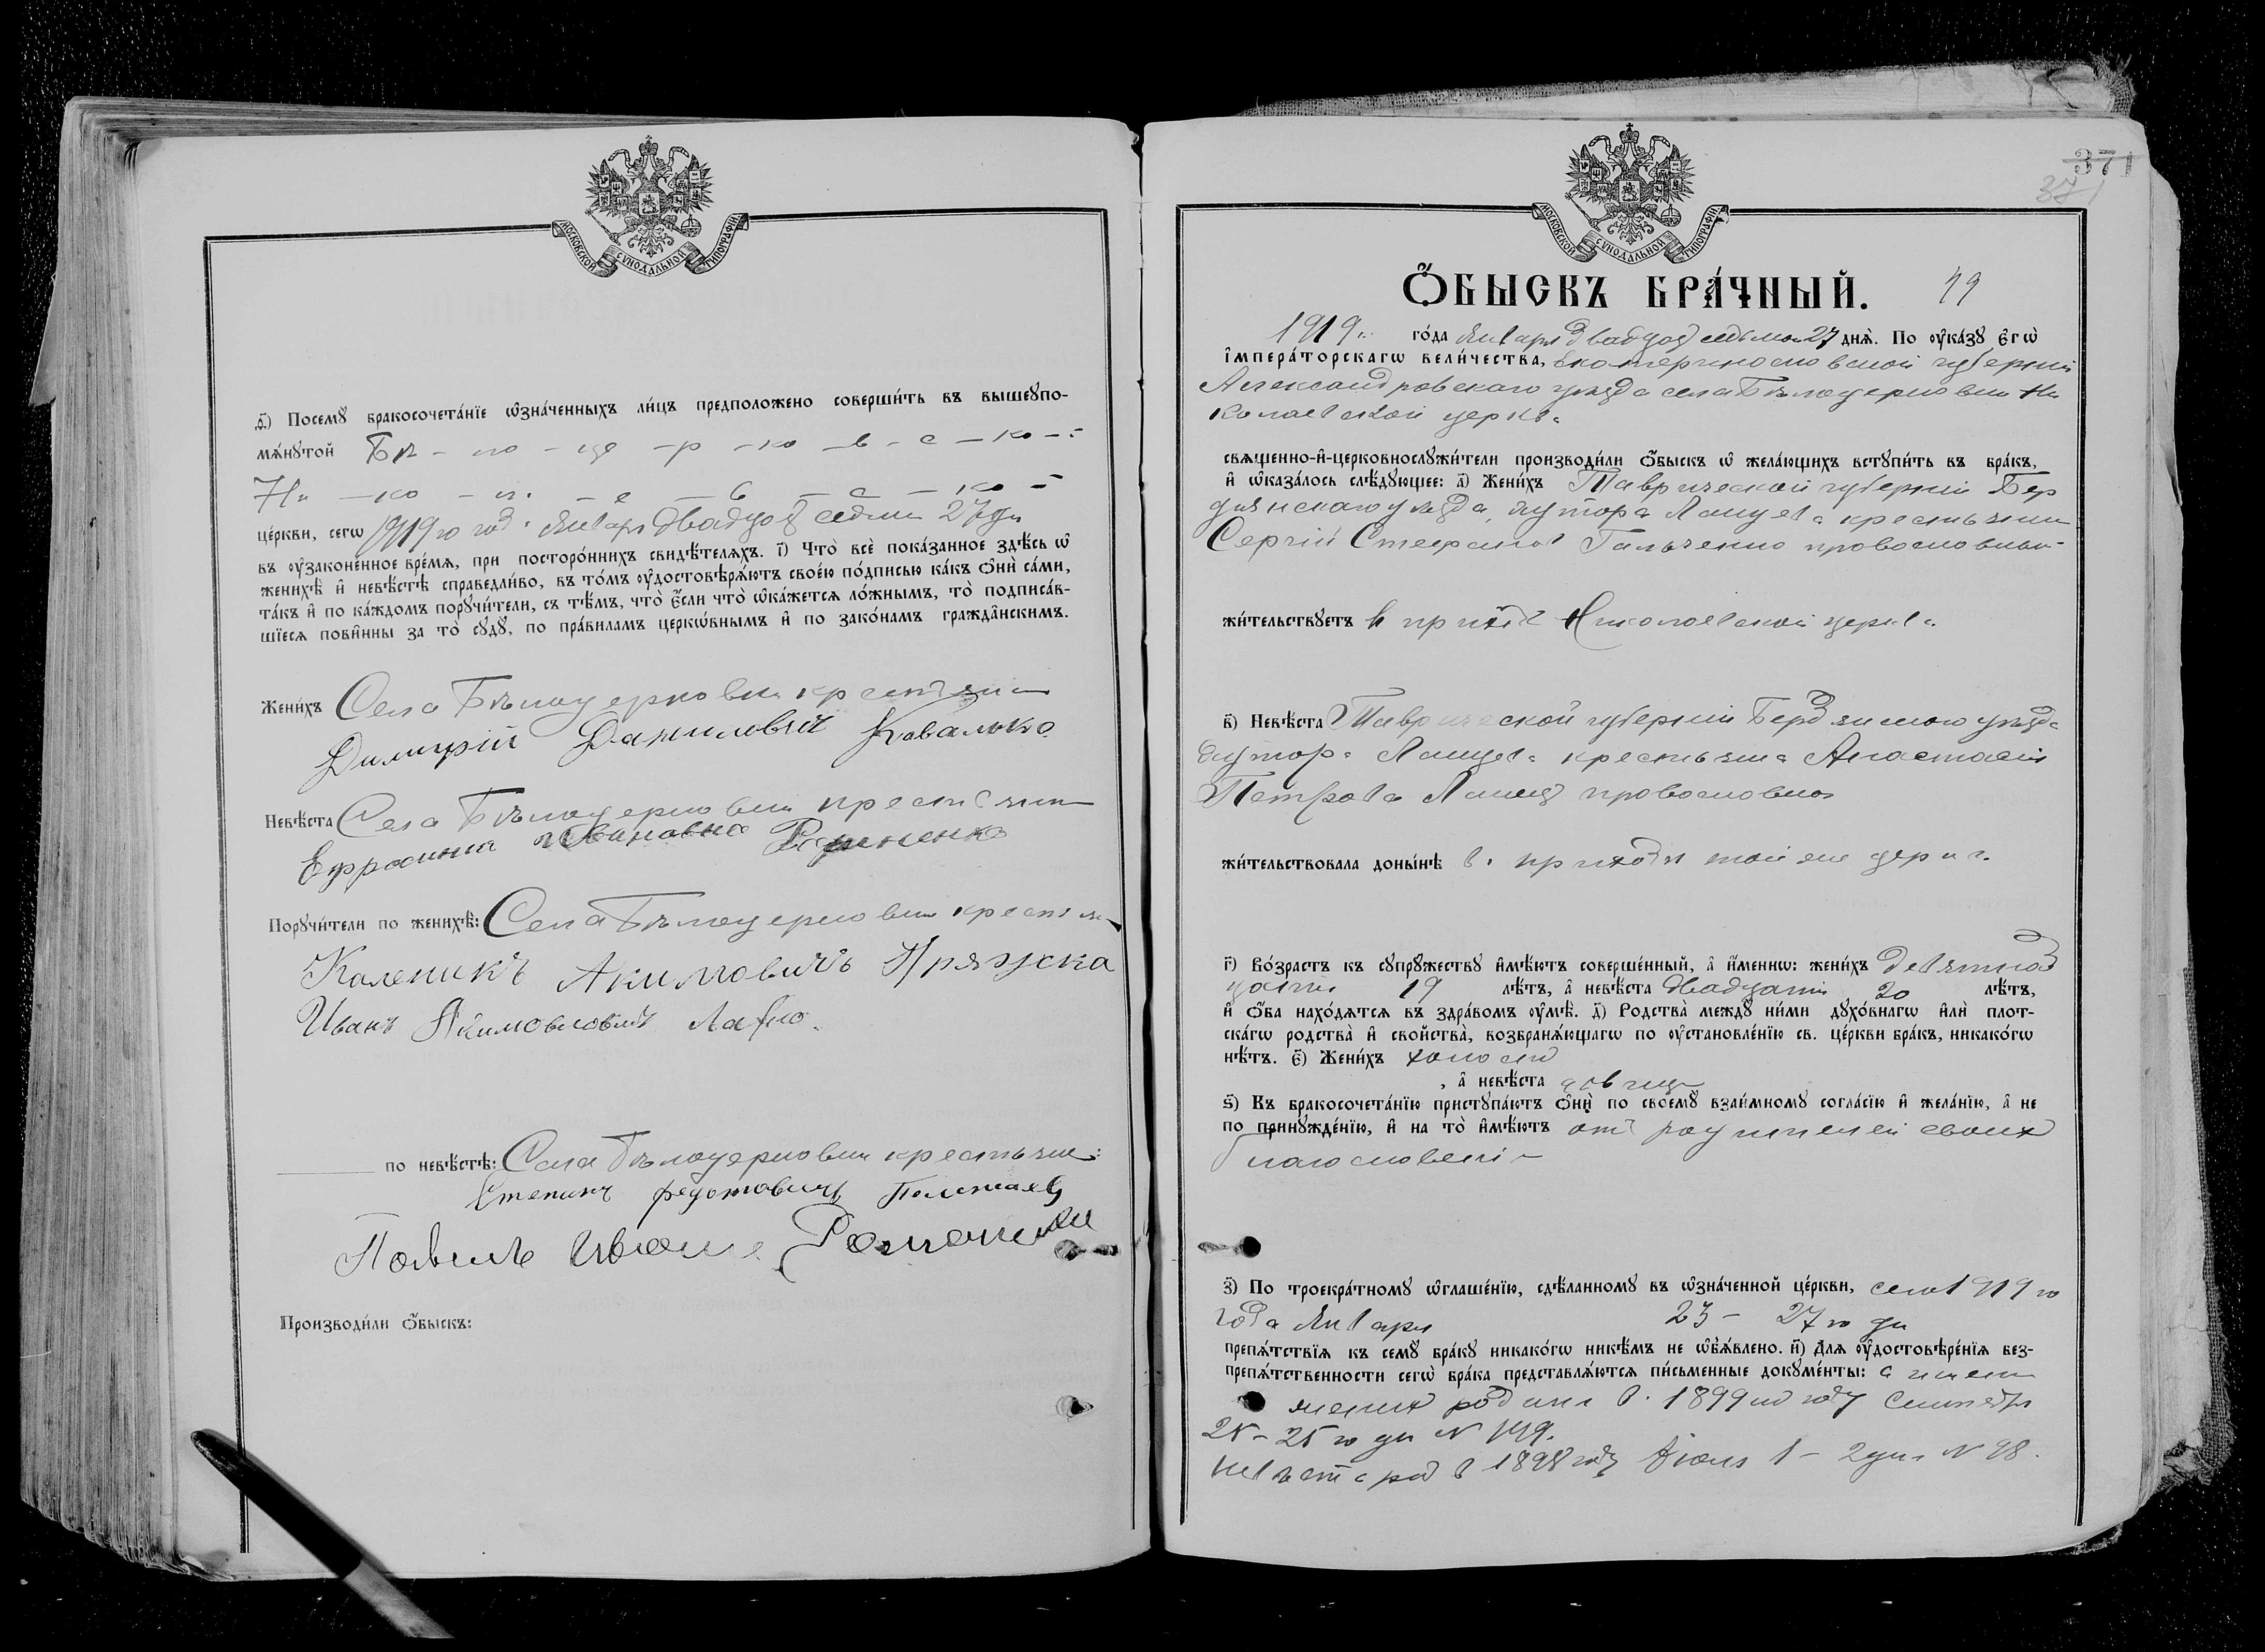 МОСКОВСКОЙ СѴНОДАЛЬНОЙ ТИПОГРАФІИ
ѳ҃) Посемꙋ̀ бракосочета́нїе ѡ҆зна́ченныхъ ли́цъ предположено соверши́ть въ вышеꙋпо-
мѧ́нꙋтой Бѣ - ло - це - р - ко - в - с - ко - :
Ни - ко - л. - е - в - с - ко -
це́ркви, сегѡ 1919го год. Января двадцат седьм 27 дн
въ ᲂу҆зако́ненное вре́мѧ, при посторо́ннихъ свидѣ́телѧхъ. і҃) Что̀ всѐ пока́занное здѣ́сь ѡ҆
женихѣ̀ и҆ невѣ́стѣ справедли́во, въ то́мъ ᲂу҆достовѣрѧ́ютъ свое́ю по́дписью ка́къ ѻ҆нѝ са́ми,
та́къ и҆ по ка́ждомъ порꙋчи́тели, съ тѣ́мъ, что̀ є҆́сли что̀ ѡ҆ка́жетсѧ ло́жнымъ, то̀ подписа́в-
шїесѧ пови́нны за то̀ сꙋдꙋ̀, по пра́виламъ церкѡ́внымъ и҆ по зако́намъ гражда̑нскимъ.
Жени́хъ Села Бѣлоцерковки крестьянин
Димитрій Даниловичъ Ковалько
Невѣ́ста Села Бѣлоцерковки крестьянк
Ефросинія Ивановна
Порꙋчи́тели по женихѣ̀: Села Бѣлоцерковки крестьян
Каленикъ Акимовичъ Пряжска
Иванъ
по невѣ́стѣ: Села Бѣлоцерковки крестьяне:
Степанъ Федотовичъ
Павелъ Иванов
Производи́ли ѻ҆́быскъ:
371
371
МОСКОВСКОЙ СѴНОДАЛЬНОЙ ТИПОГРАФІИ
Ѻ҆́БЫСКЪ БРА́ЧНЫЙ. 49
1919 г. го́да Января двадцат седьмого 27 днѧ̀. По ᲂу҆ка́зꙋ Є҆гѡ̀
і҆мпера́торскагѡ вели́чества, Екатеринославской губерніи
Александровскаго уезда села Бѣлоцерковки Ни
колаевской церкв.
свѧщенно-и҆-церковнослꙋжи́тели производи́ли ѻ҆́быскъ ѡ҆ жела́ющихъ встꙋпи́ть въ бра́къ,
и҆ ѡ҆каза́лось слѣ́дꙋющее: а҃) Жени́хъ Таврической губерніи Бер
дянскаго уезда, хутора Лащева крестьянин
Сергій Стефанов Гальченко провословный
жи́тельствꙋетъ в приход Николаевской церкв.
в҃) Невѣ́ста Таврической губерніи Бердянского уезда
хутора Лащева крестьянка Анастасія
Петрова провословная
жи́тельствовала доны́нѣ в. приходѣ той же церкв.
г҃) Во́зрастъ къ сꙋпрꙋ́жествꙋ и҆мѣ́ютъ соверше́нный, а҆ и҆́меннѡ: жени́хъ девятнад
цати 19 лѣ́тъ, а҆ невѣ́ста двадцати 20 лѣ́тъ,
и҆ ѻ҆́ба нахо́дѧтсѧ въ здра́вомъ ᲂу҆мѣ̀. д҃) Родства̀ междꙋ̀ ни́ми дꙋхо́внагѡ и҆лѝ плот-
ска́гѡ родства̀ и҆ свойства̀, возбранѧ́ющагѡ по ᲂу҆становле́нїю св. це́ркви бра́къ, никако́гѡ
нѣ́тъ. є҃) Жени́хъ холост
, а҆ невѣ́ста девица
ѕ҃) Въ бракосочета́нїю пристꙋпа́ютъ ѻ҆нѝ по своемꙋ̀ взаи́мномꙋ согла́сїю и҆ жела́нїю, а҆ не
по принꙋжде́нїю, и҆ на то̀ и҆мѣ́ютъ отъ родителей своих
благословені
з҃) По троекра́тномꙋ ѡ҆глаше́нїю, сдѣ́ланномꙋ въ ѡ҆зна́ченной це́ркви, сего 1919го
года Января 23 - 27го дн
препѧ́тствїѧ къ семꙋ̀ бра́кꙋ никако́гѡ никѣ́мъ не ѡ҆б̾ѧ́влено. и҃) Длѧ ᲂу҆достовѣре́нїѧ без-
препѧ́тственности сегѡ̀ бра́ка представлѧ́ютсѧ пи́сьменные докꙋме́нты:
жених родился в. 1899м году Сентября
25 - 25го дн N 149.
невѣста род в 1898 году Июня 1 - 2 дня N 98.